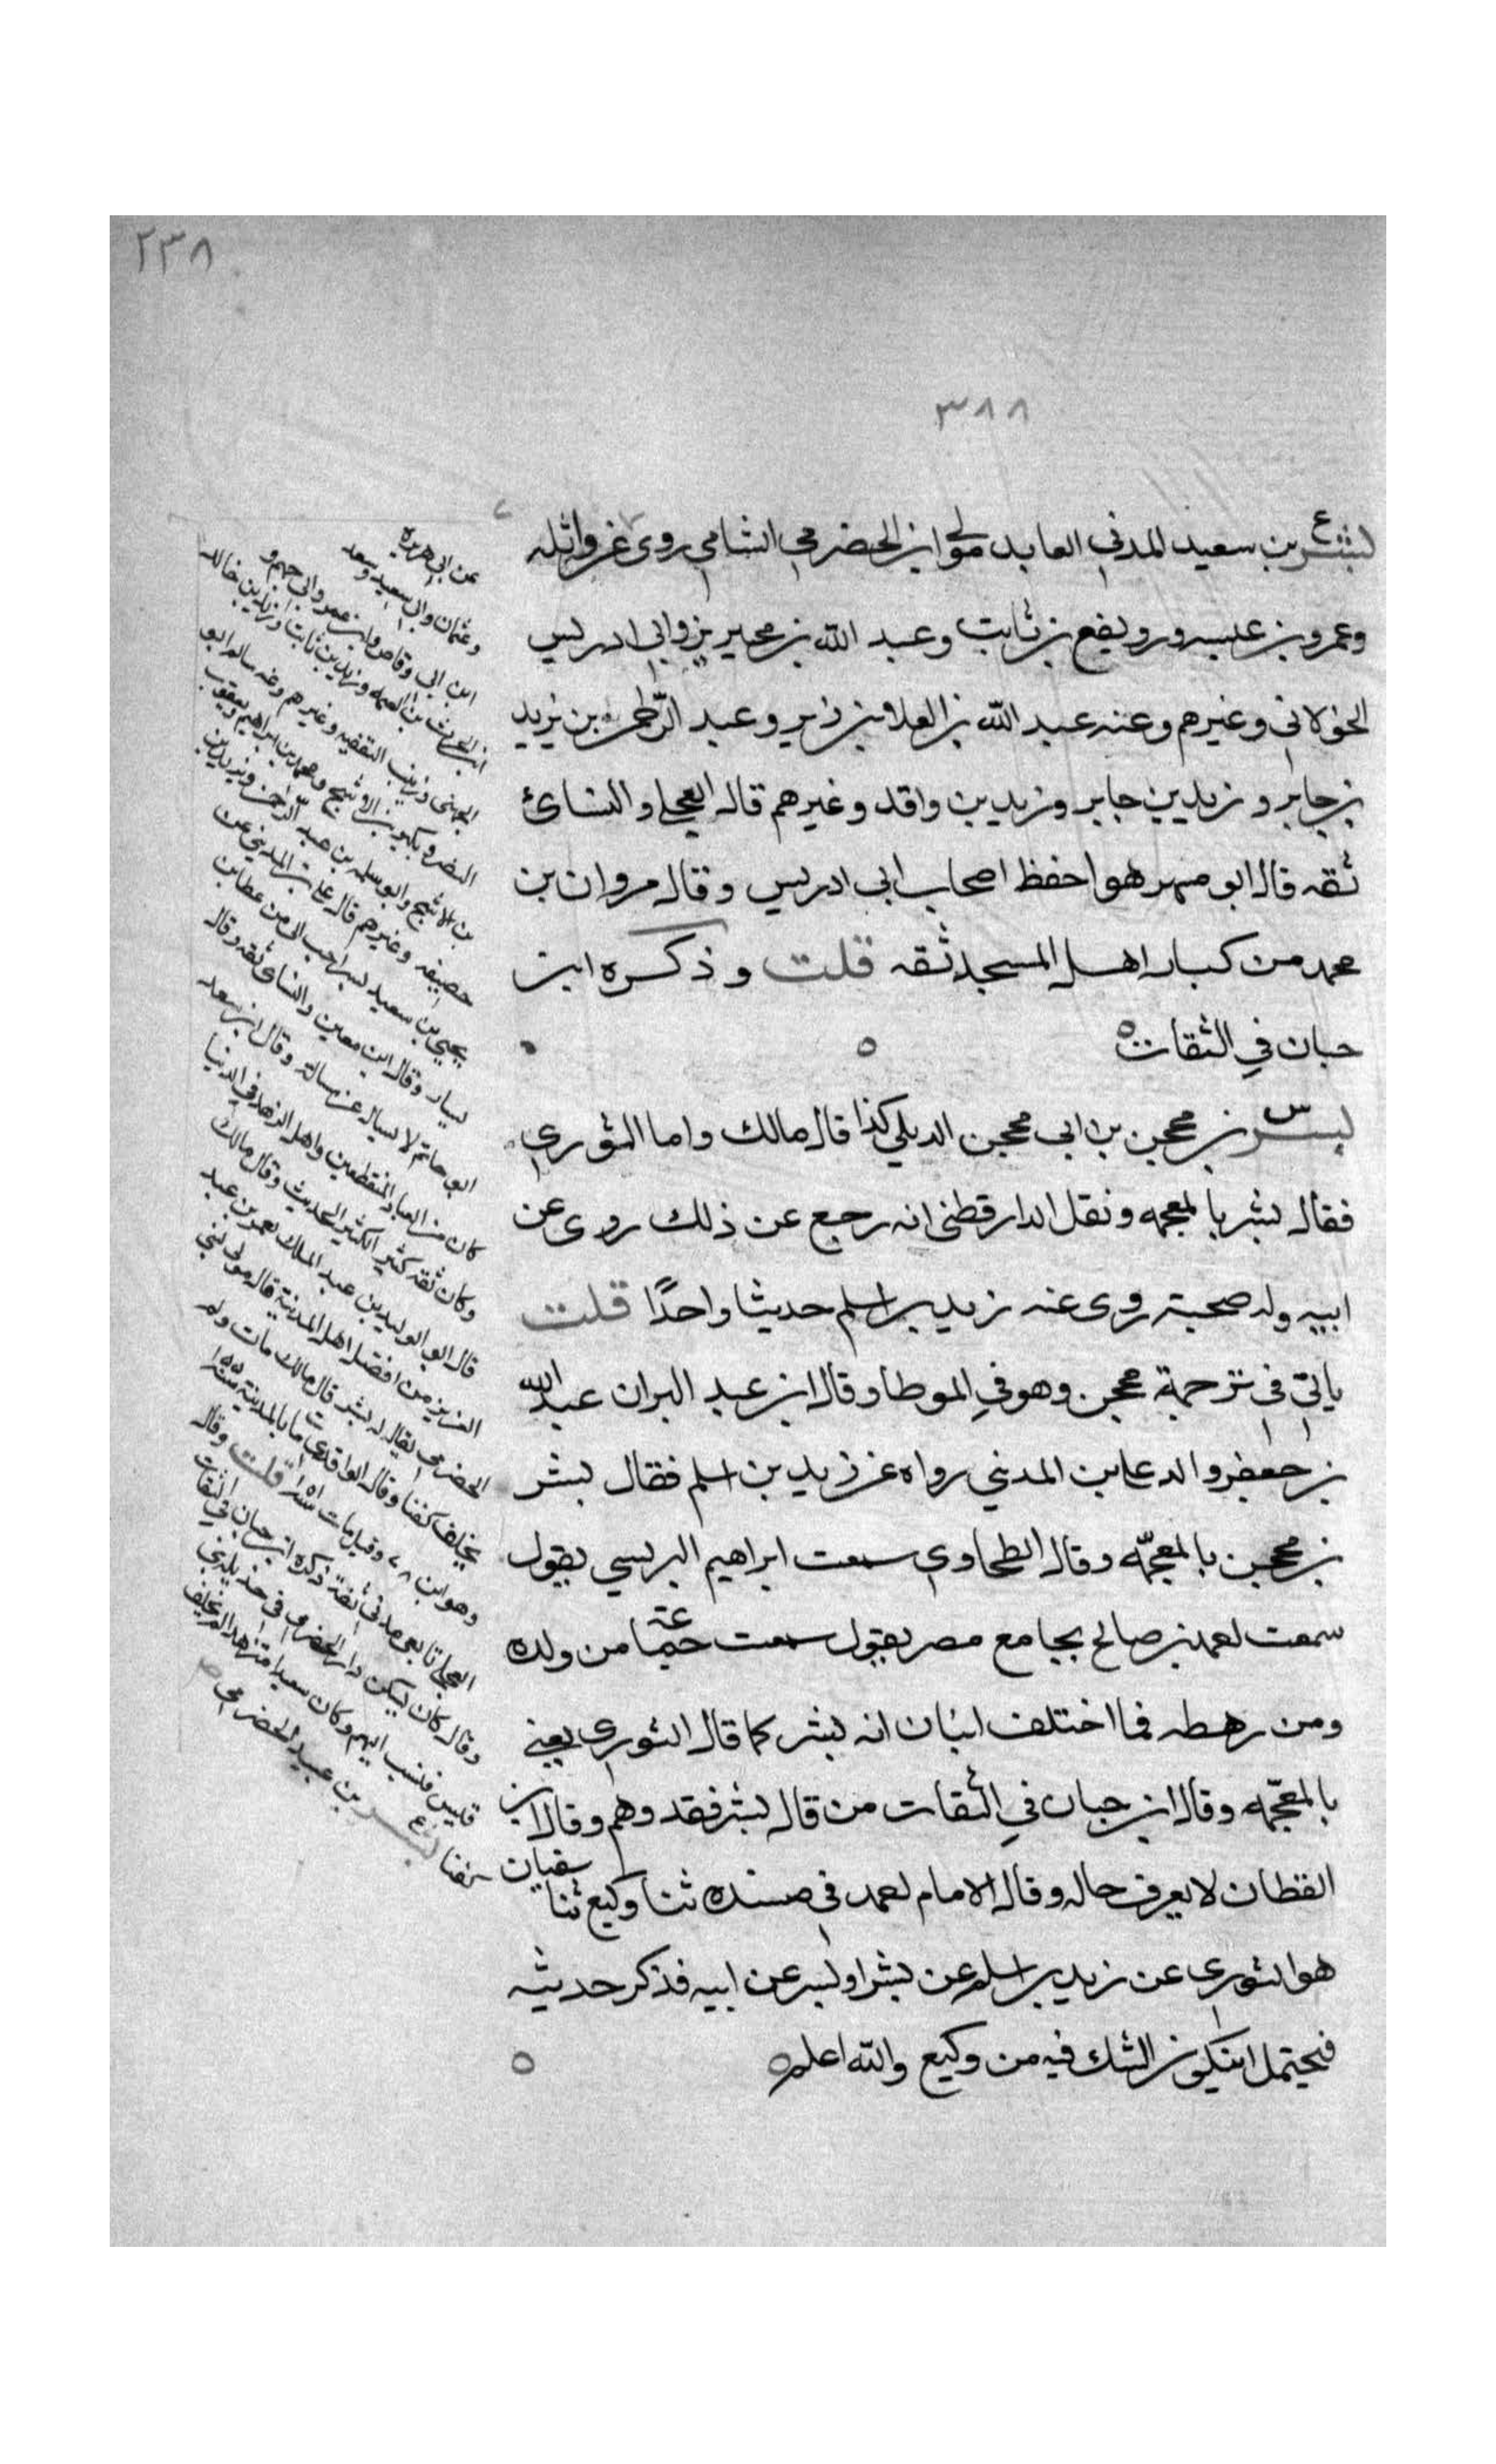 ٢٣٨
٣٨٨
ع
بسر بن سعيد المدني العابد مولى ابن الحضرمي الشامي روى عن واثله
وعمرو بن عبسه ورويفع بن ثابت وعبد الله بن محيريز وابي ادريس
الخولاني وغيرهم وعنه عبد الله بن العلا بن زبر وعبد الرحمن بن يزيد
بن جابر و زيد بن جابر وزيد بن واقد وغيرهم قال العجلي والنسائ
ثقه قال ابو مسهر هو احفظ اصحاب ابي ادريس وقال مروان بن
محمد من كبار اهل المسجد ثقه قلت وذكره ابن
حبان في الثقات ه
س
بسر بن محجن بن ابي محجن الديلي كذا قال مالك واما الثوري
فقال بشر بالمعجمه ونقل الدارقطني انه رجع عن ذلك روى عن
ابيه وله صحبة روى عنه زيد بن اسلم حديثا واحدًا قلت
ياتي في ترجمة محجن وهو في الموطا وقال ابن عبد البر ان عبد الله
بن جعفر والد علي بن المديني رواه عن زيد بن اسلم فقال بشر
بن محجن بالمعجمه وقال الطحاوي سمعت ابراهيم البرلسي يقول
سمعت احمد بن صالح بجامع مصر يقول سمعت جماعة من ولده
ومن رهطه فما اختلف اثنان انه بشر كما قال الثوري يعني
بالمعجمه وقال ابن حبان في الثقات من قال بشر فقد وهم وقال ابن
القطان لا يعرف حاله وقال الامام احمد في مسنده ثنا وكيع ثنا سفيان
هو الثوري عن زيد بن اسلم عن بشر او بسر عن ابيه فذكر حديثه
فيحتمل ان يكون الشك فيه من وكيع والله اعلم ه
عن ابي هريرة
وعثمان وابي سعيد وسعد
ابن ابي وقاص وابن عمر وابي جهيم
ابن الحرث بن الصمه وزيد بن ثابت وزيد بن خالد
الجهني وزينب الثقفيه وغيرهم وعنه سالم ابو
النضر وبكير بن الاشج ومحمد بن ابراهيم ويعقوب
بن الاشج وابو سلمه بن عبد الرحمن ويزيد بن
خصيفه وغيرهم قال علي بن المديني عن
يحيى بن سعيد بسر احب الي من عطا بن
يسار وقال ابن معين والنساي ثقه وقال
ابو حاتم لا يسال عن مثله وقال ابن سعد
كان من العباد المنقطعين واهل الزهد في الدنيا
وكان ثقه كثير الحديث وقال مالك
قال الوليد بن عبد الملك لعمر بن عبد
العزيز من افضل اهل المدينة قال مولى لبني
الحضرمي يقال له بسر قال مالك مات ولم
يخلف كفنا وقال الواقدي مات بالمدينة سنة ١٠٠
وهو ابن ٧٨ وقيل مات سنة قلت وقال
العجلي تابعي مدني ثقة ذكره ابن حبان في الثقات
وقال كان يسكن دار الحضرمي في جديلة
قيس فنسب اليهم وكان متزهدا لم يخلف
كفنا بسر بن عبيد الله الحضرمي